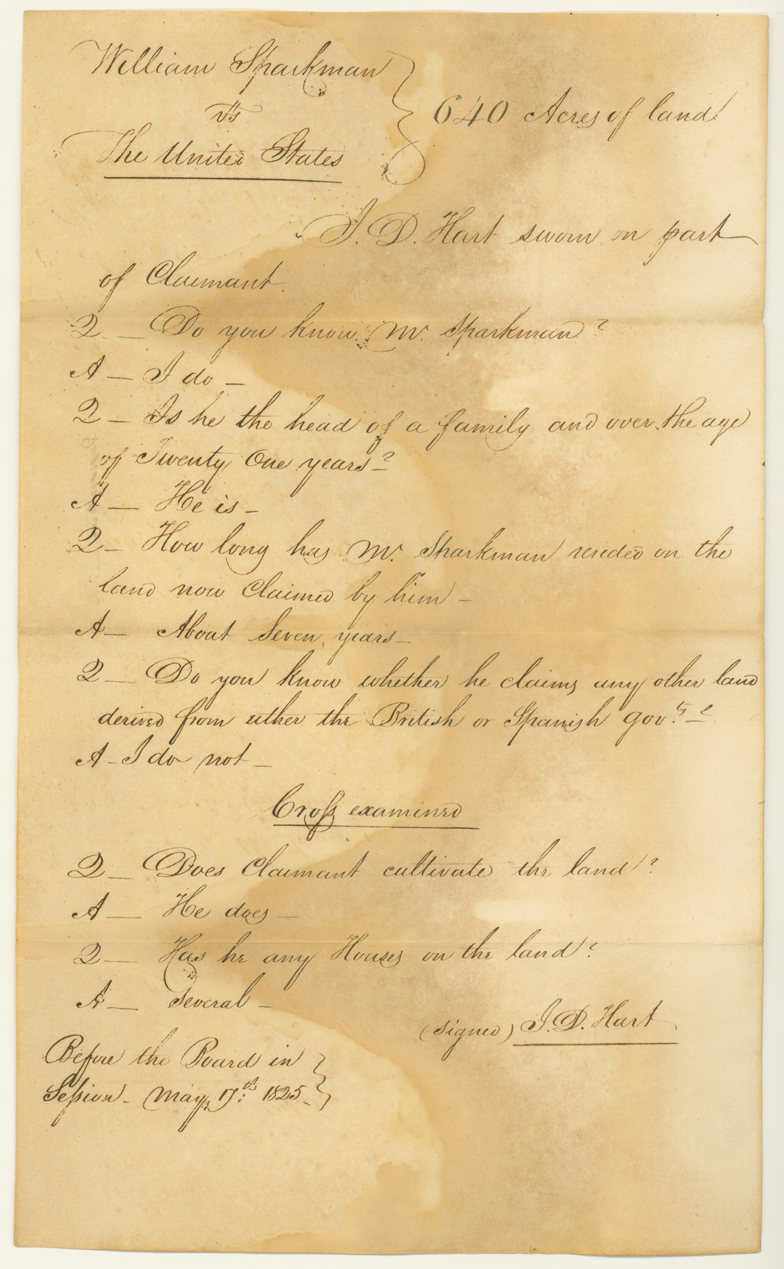 William Sparkman
vs
The United States
640 Acres of land
I. D. Hart sworn on part
of Claimant.
Q — Do you know Mr. Sparkman?
A — I do —
Q — Is he the head of a family and over the age
of Twenty One years? —
A — He is —
Q — How long has Mr. Sparkman resided on the
land now Claimed by him —
A — About Seven years —
Q — Do you know whether he claims any other land
derived from either the British or Spanish gov.ts? —
A — I do not —
Cross examined
Q — Does Claimant cultivate the land?
A — He does —
Q — Has he any Houses on the land?
A — Several —
(signed) I. D. Hart
Before the Board in
Session — May 17th 1825 —